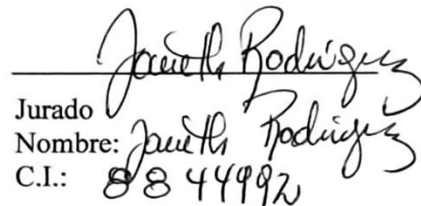 Janeth Rodriguez
Jurado
Nombre: Janeth Rodriguez
C.I.: 8844992